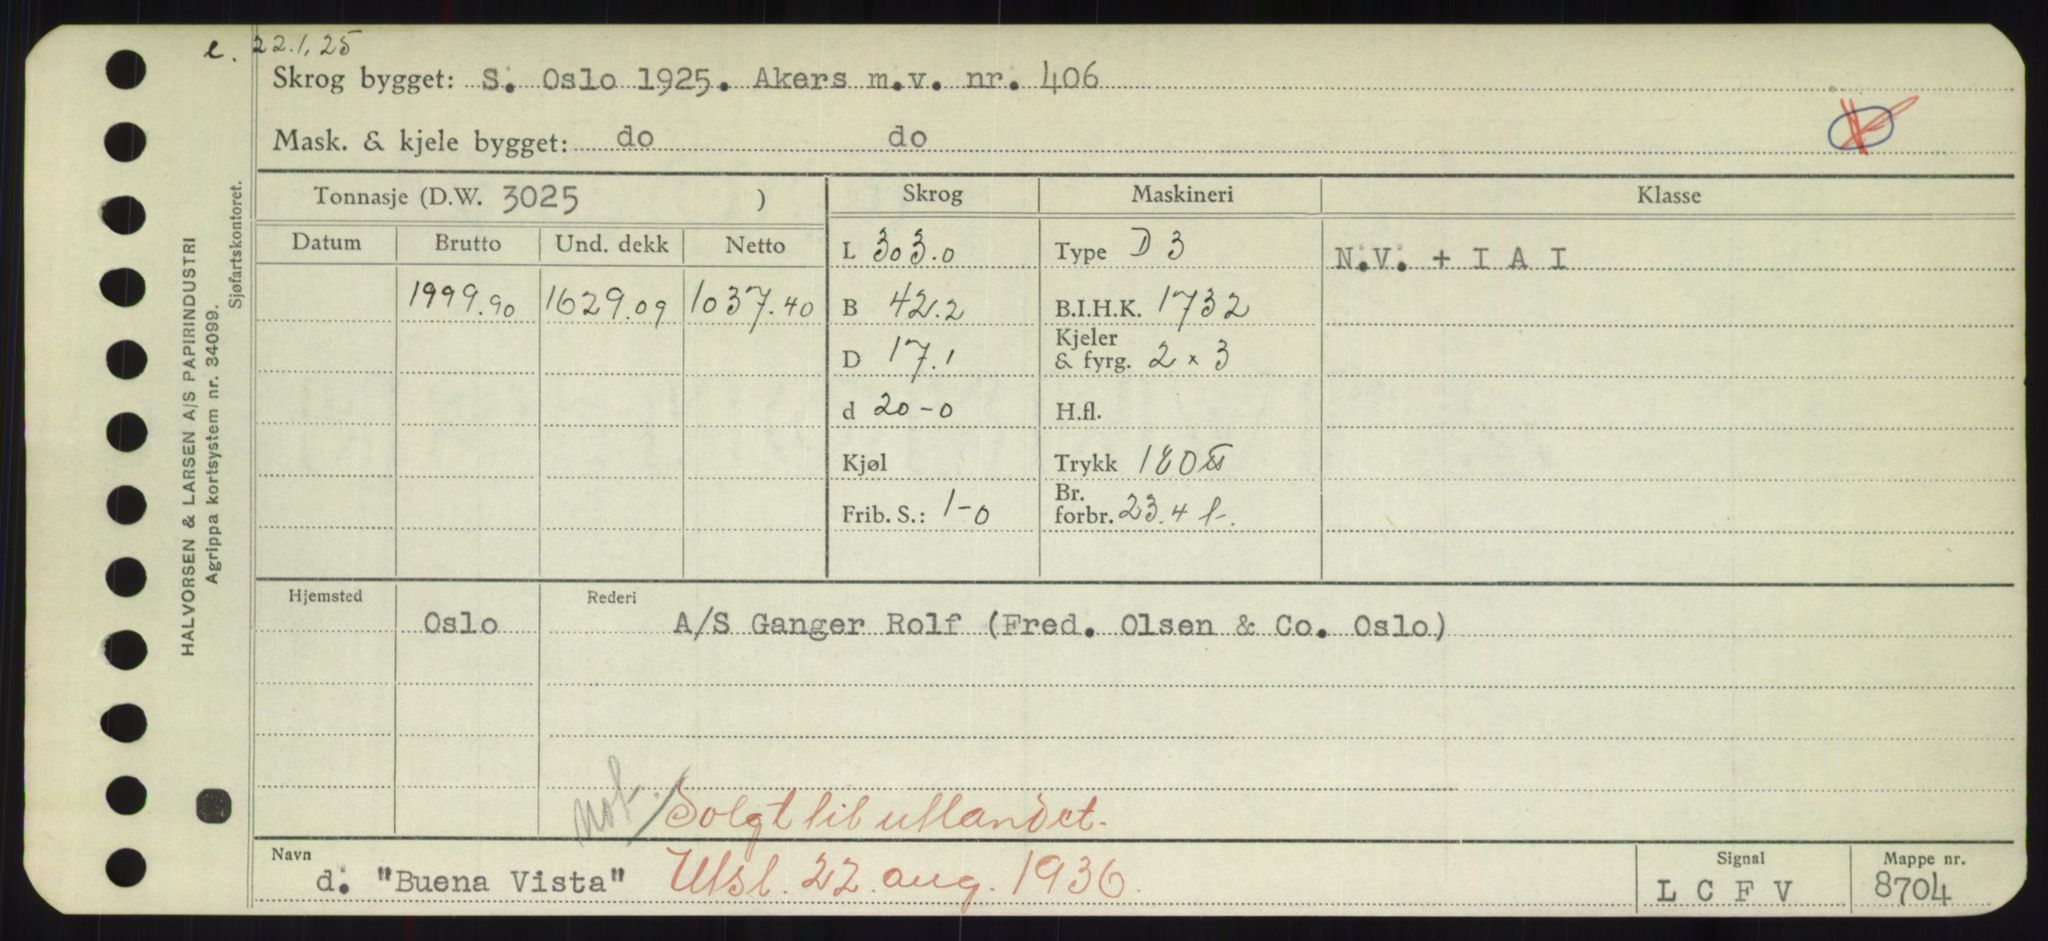 e. 22.1.25
Skrog bygget: S. Oslo 1925. Akers m.v. nr. 406
Mask. & kjele bygget: do do
Tonnasje (D.W. 3025 ) Skrog Maskineri Klasse
Datum Brutto Und. dekk Netto L 303.0 Type D 3 N.V. + I A I
1999.90 1629.09 1037.40 B 42.2 B.I.H.K. 1732
D 17.1 Kjeler & fyrg. 2 x 3
d 20-0 H.fl.
Kjøl Trykk 180
Frib. S.: 1-0 Br. forbr. 23.4 t.
Hjemsted Rederi
Oslo A/S Ganger Rolf (Fred. Olsen & Co. Oslo)
not. Solgt til utlandet.
Navn Signal Mappe nr.
d. "Buena Vista" Utsl. 22. aug. 1936. L C F V 8704
HALVORSEN & LARSEN A/S PAPIRINDUSTRI
Agrippa kortsystem nr. 34099.
Sjøfartskontoret.